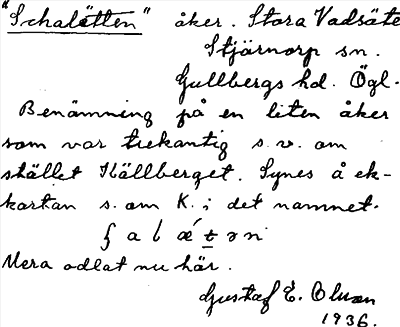 "Schalätten" åker. Stora Vadsäte
Stjärnorp sn.
Gullbergs hd. Ögl.
Benämning på en liten åker
som var trekantig s.v. om
stället Källberget. Synes å ek-
kartan s. om K. i det namnet.
ʃ a l ǽ t ə n
Mera odlat nu här.
Gustaf E.
1936.